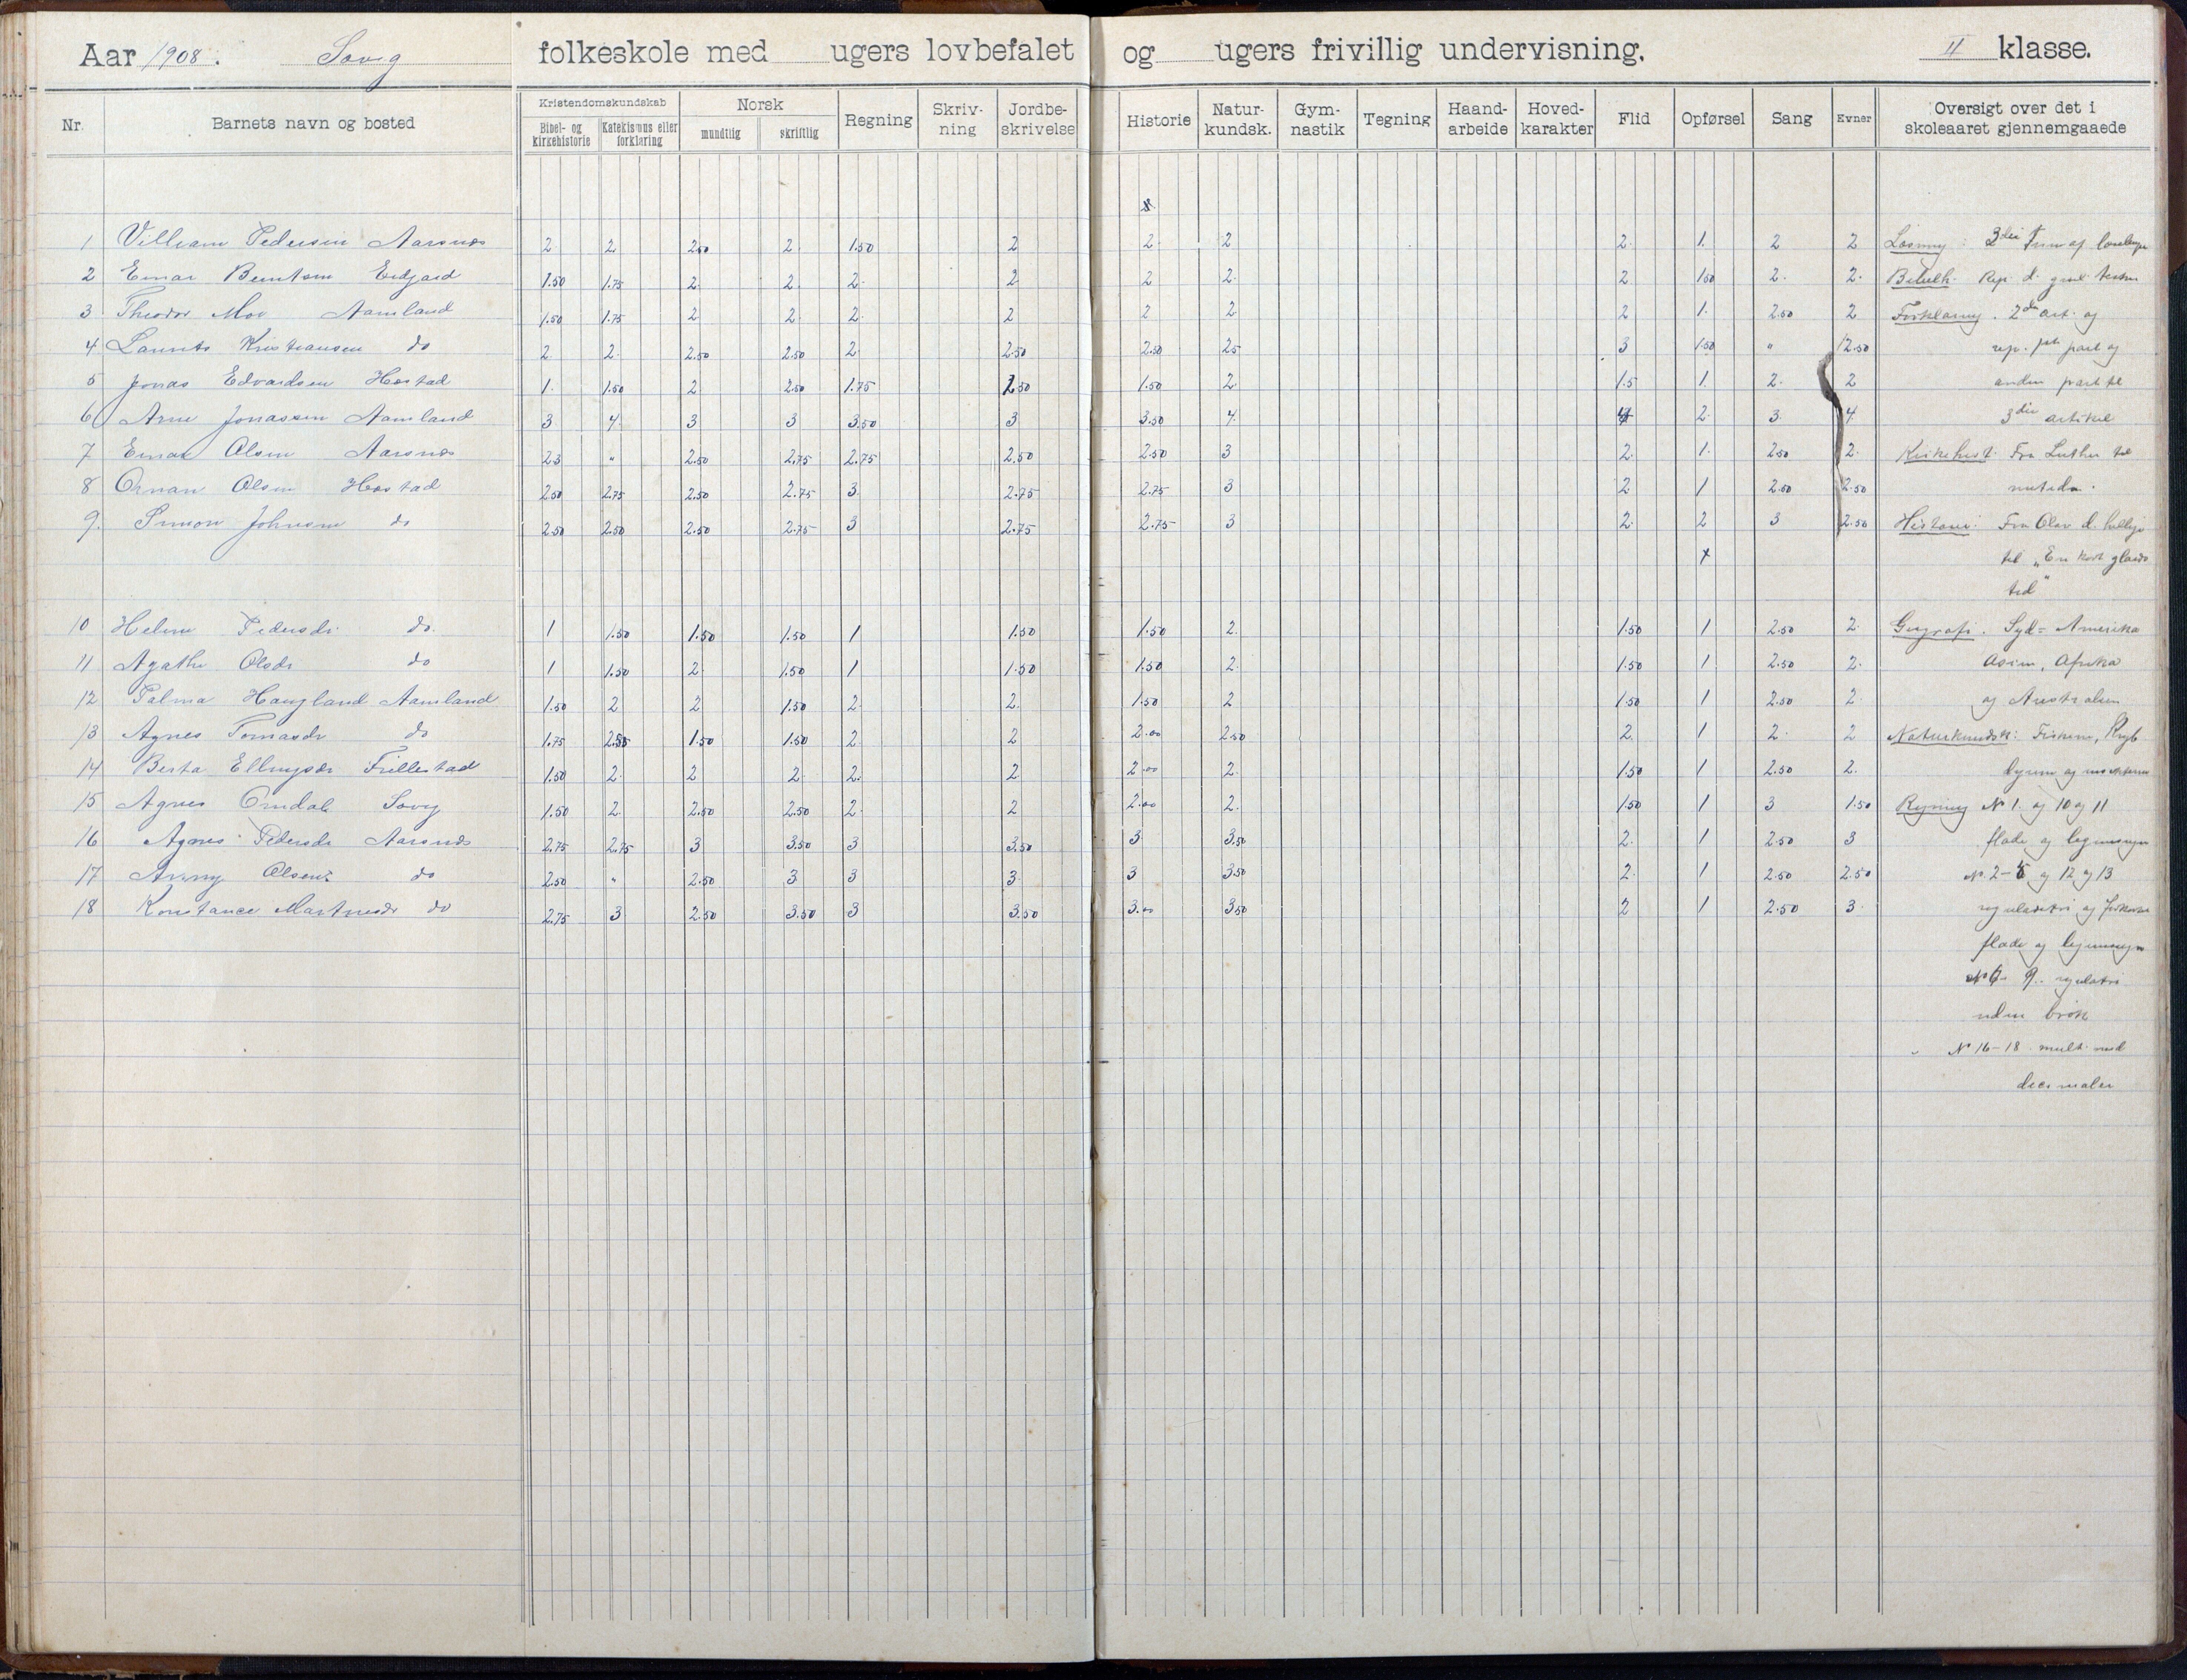 Aar 1908. Søvig folkeskole med ugers lovbefalet og ugers frivillig undervisning. II klasse.
Nr. Barnets navn og bosted Kristendomskundskab Bibel- og kirkehistorie Katekismus eller forklaring Norsk mundtlig skriftlig Regning Skriv-ning Jordbe-skrivelse Historie Natur-kundsk. Gym-nastik Tegning Haand-arbeide Hoved-karakter Flid Opførsel Sang Evner Oversigt over det i skoleaaret gjennemgaaede
1 Villiam Pedersen Aarsnes 2 2 2.50 2 1.50 2 2 2 2 1 2 2 Læsning: 3die
2 Einar Berntsen Eidgard 1.50 1.75 2 2 2 2 2 2 2 1.50 2 2 Bibelh. Rep. d. gml. testm
3 Theodor Moe Aamland 1.50 1.75 2 2 2 2 2 2 2 1 2.50 2 Forklaring. 2den art. og
4 Laurits Kristiansen do 2 2 2.50 2.50 2 2.50 2.50 25 3 1.50 " 2.50 rep. part og
5 Jonas Edvardsen Høstad 1 1.50 2 2.50 1.75 2.50 1.50 2 1.5 1 2 2 anden part til
6 Arne Jonassen Aamland 3 4 3 3 3.50 3 3.50 4 4 2 3 4 3die artikel
7 Einar Olsen Aarsnes 23 " 2.50 2.75 2.75 2.50 2.50 3 2 1 2.50 2 Kirkehist. Fra Luther til
8 Ornan Olsen Høstad 2.50 2.75 2.50 2.75 3 2.75 2.75 3 2 1 2.50 2.50 nutiden.
9. Simon Johnsen do 2.50 2.50 2.50 2.75 3 2.75 2.75 3 2 2 3 2.50 Historie: Fra Olav d. hellige
x til „En kort glands
tid"
10 Helene Pedersdr. do. 1 1.50 1.50 1.50 1 1.50 1.50 2 1.50 1 2.50 2 Geografi. Syd-Amerika
11 Agathe Olsdr do 1 1.50 2 1.50 1 1.50 1.50 2 1.50 1 2.50 2 Asien, Afrika
12 Palma Haugland Aamland 1.50 2 2 1.50 2 2 1.50 2 1.50 1 2.50 2 og Australien
13 Agnes Tomasdr do 1.75 1.50 1.50 2 2 2.00 2.50 2 1 2 2 Naturkundsk: Fiskene, Kryb
14 Berta Ellingsdr Fillestad 1.50 2 2 2 2 2 2.00 2 1.50 1 2.50 2 dyrene og insekterne
15 Agnes Omdal Søvig 1.50 2 2.50 2.50 2 2 2.00 2 1.50 1 3 1.50 Regning No 1. og 10 og 11
16 Agnes Pedersdr Aarsnes 2.75 2.75 3 3.50 3 3.50 3 3.50 2 1 2.50 3 flade og legemsregn
17 Anny Olsen do 2.50 " 2.50 3 3 3 3 3.50 2 1 2.50 2.50 No. 2-5 og 12 og 13
18 Konstance Martinsdr do 2.75 3 2.50 3.50 3 3.50 3.00 3.50 2 1 2.50 3 reguladetri og
flade og legemsregn
No 6-9. reguladetri
uden brøk
No 16-18. mult. med
decimaler